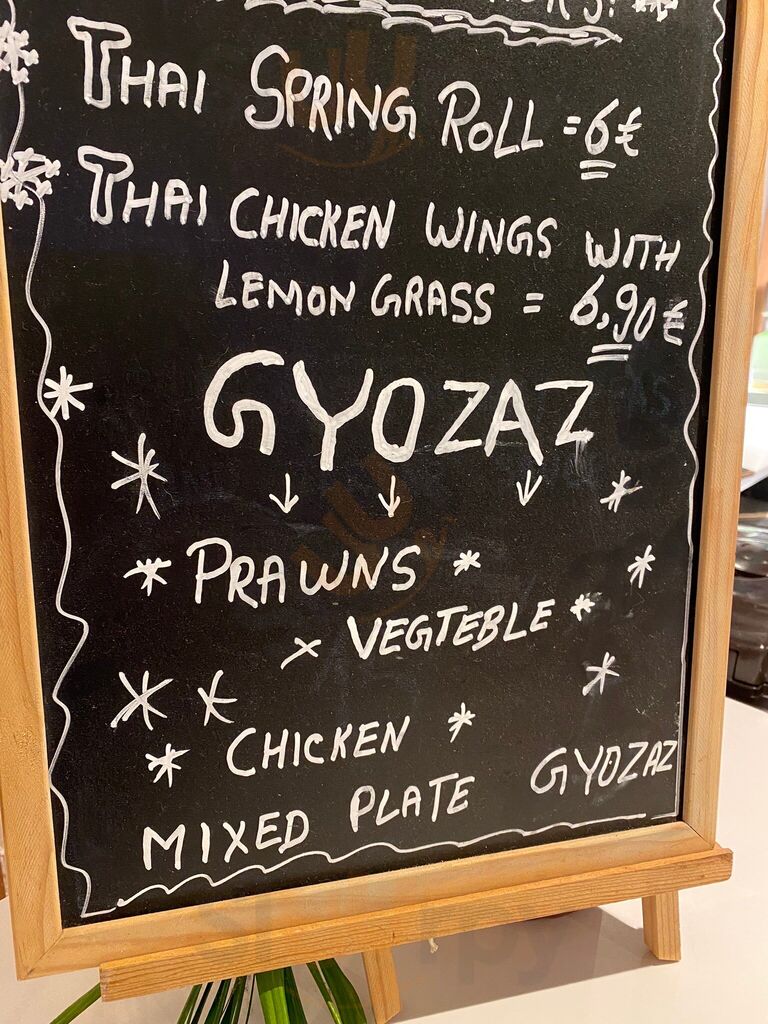 THAI SPRING ROLL = 6€
THAI CHICKEN WINGS WITH
LEMON GRASS = 6,90€
GYOZAZ
PRAWNS
VEGTEBLE
CHICKEN
MIXED PLATE GYOZAZ